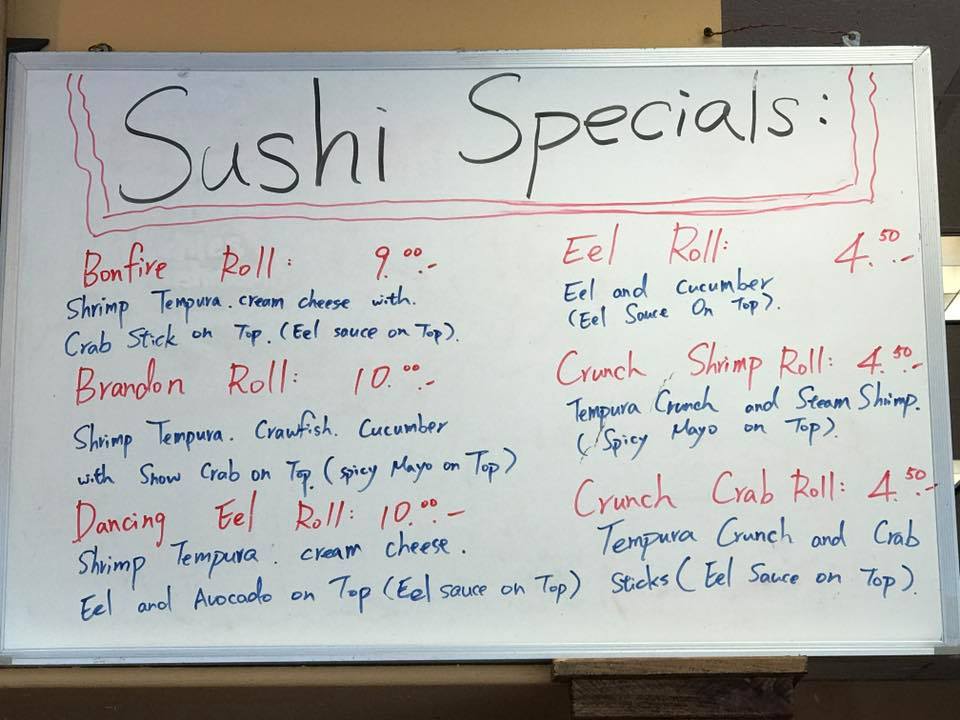 Sushi Specials:
Bonfire Roll: 9.00.-
Shrimp Tempura. cream cheese with.
Crab Stick on Top. (Eel sauce on Top).
Brandon Roll: 10.00.-
Shrimp Tempura. Crawfish. Cucumber
with Snow Crab on Top. (spicy Mayo on Top)
Dancing Eel Roll: 10.00.-
Shrimp Tempura. cream cheese.
Eel and Avocado on Top (Eel sauce on Top)
Eel Roll: 4.50.-
Eel and cucumber
(Eel Sauce On Top).
Crunch Shrimp Roll: 4.50.-
Tempura Crunch and Steam Shrimp.
(Spicy Mayo on Top).
Crunch Crab Roll: 4.50.-
Tempura Crunch and Crab
Sticks (Eel Sauce on Top).